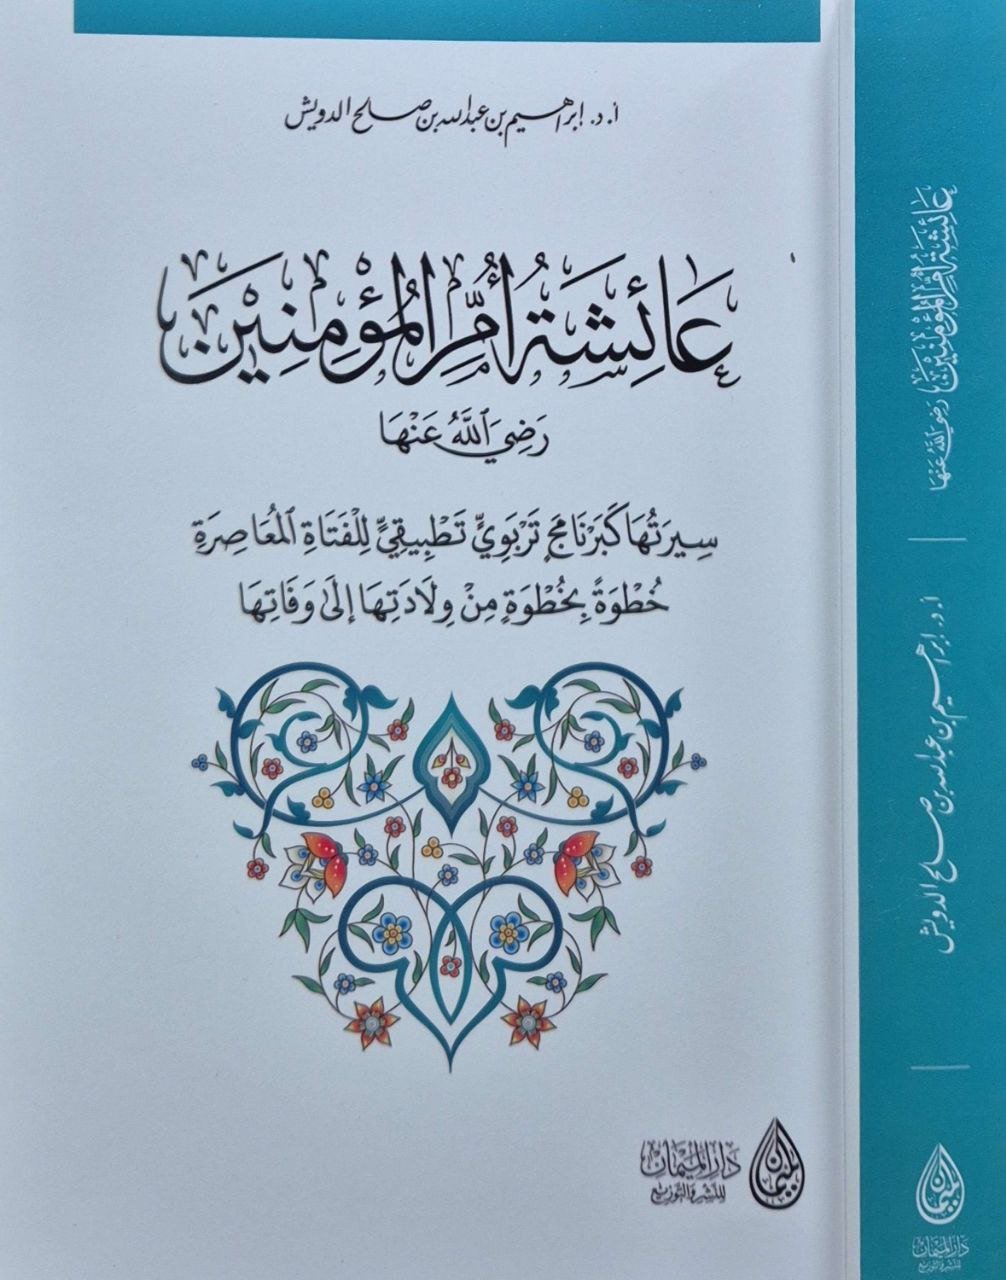 أ. د. إبراهيم بن عبدالله بن صالح الدويش
عَائِشَةُ أُمُّ المُؤْمِنِيْنَ
رَضِيَ اللَّهُ عَنْهَا
سِيرَتُهَا كَبَرْنَامَجٍ تَرْبَوِيٍّ تَطْبِيقِيٍّ لِلْفَتَاةِ المُعَاصِرَةِ
خُطْوَةً بِخُطْوَةٍ مِنْ وِلَادَتِهَا إِلَى وَفَاتِهَا
الميمان
دَارُ المَيْمَان
لِلنَّشْرِ وَالتَّوْزِيعِ
عَائِشَةُ أُمُّ المُؤْمِنِيْنَ
رَضِيَ اللَّهُ عَنْهَا
أ. د. إبراهيم بن عبدالله بن صالح الدويش
الميمان
دَارُ المَيْمَان
لِلنَّشْرِ وَالتَّوْزِيعِ